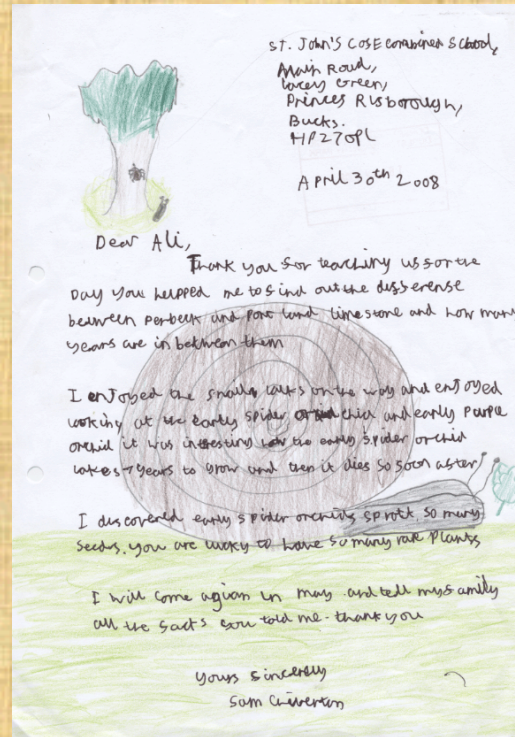 ST. John'S COSE combined School,
Main Road,
Lacey Green,
Princes Risborough,
Bucks.
HP27 0PL
April 30th 2008
Dear Ali,
Thank you for teaching us for the
Day you helpped me to find out the differense
between perbeck and port land limestone and how many
years are in between them
I enjoyed the snails talks on the way and enjoyed
looking at the early spider orchid and early purple
orchid it was intresting how the early spider orchid
takes 7 years to grow and then it dies so soon after
I discovered early spider orchids sprott so many
Seeds. you are lucky to have so many rare plants
I will come agian in may and tell my family
all the facts you told me. thank you
Yours sincerely
Sam